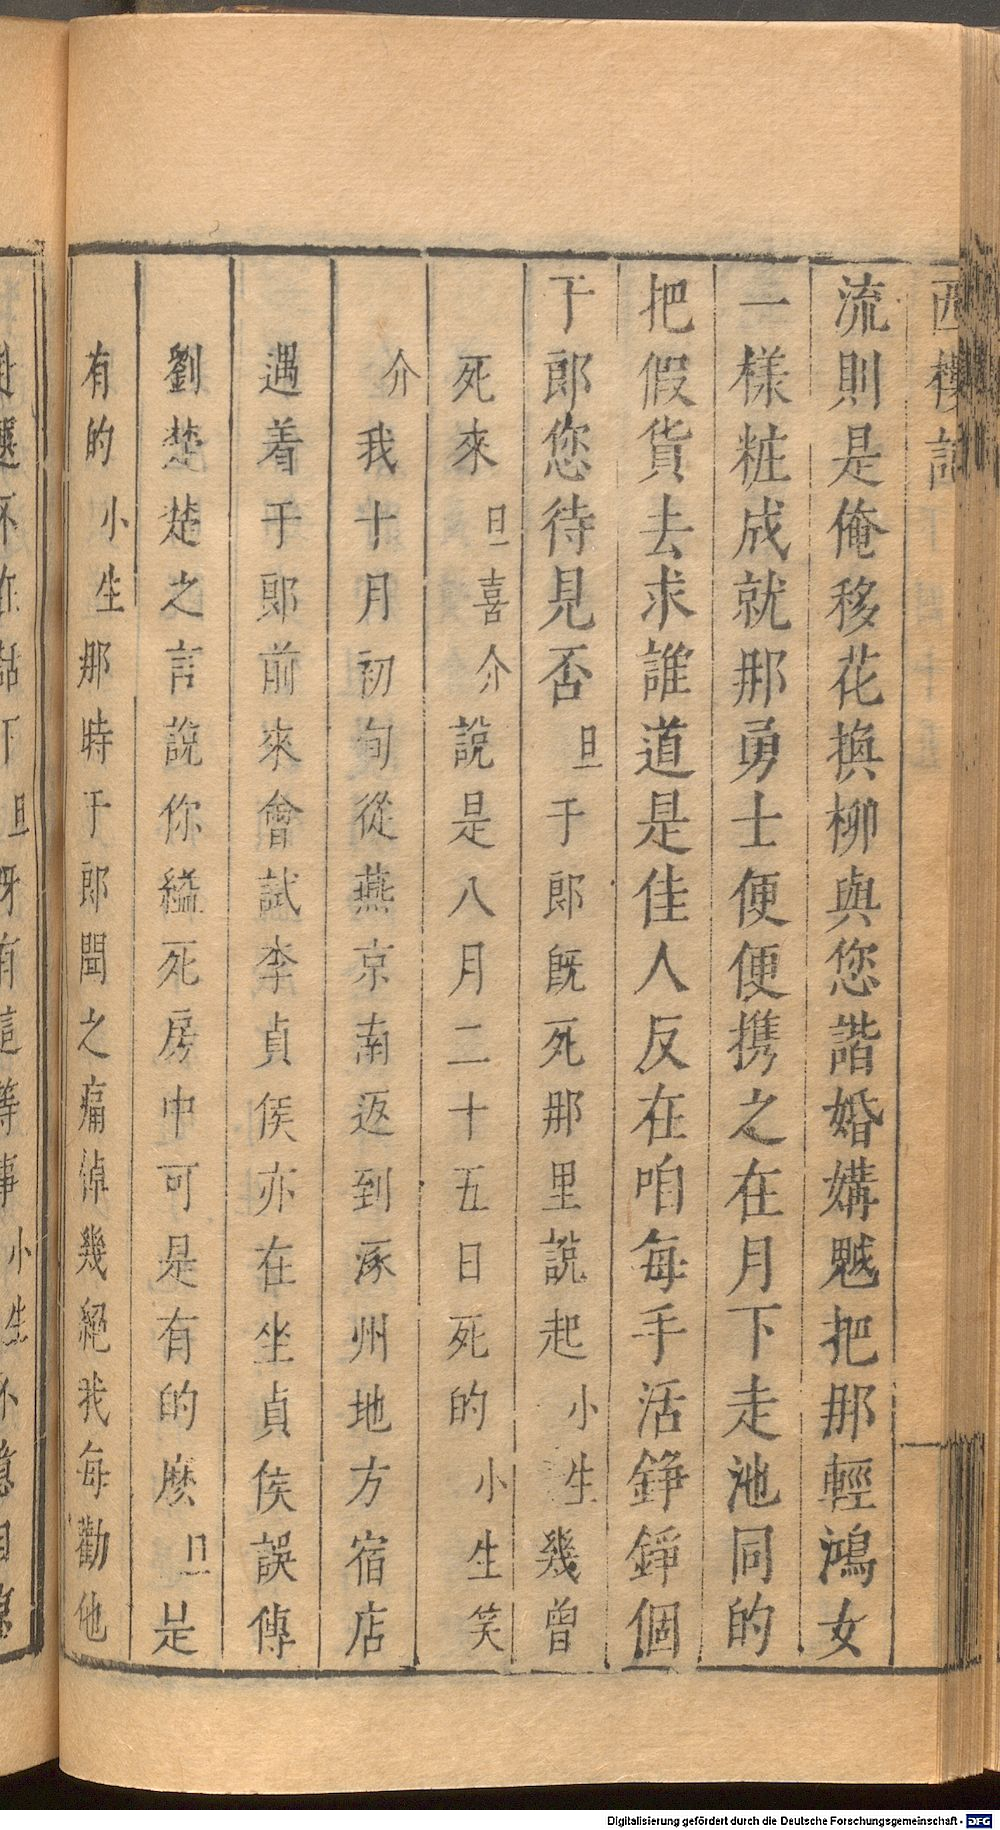 西樓記
流則是俺移花換柳與您諧婚媾魆把那輕鴻女
一樣粧成就那勇士便便携之在月下走池同的
把假貨去求誰道是佳人反在咱每手活錚錚個
于郎您待見否旦于郎旣死那里說起小生幾曾
死來旦喜介說是八月二十五日死的小生笑
介我十月初旬從燕京南返到涿州地方宿店
遇着于郎前來會試李貞侯亦在坐貞侯誤傳
劉楚楚之言說你縊死房中可是有的麽旦是
有的小生那時于郎聞之痛悼幾絕我每勸他
旦呀有這等事小生
Digitalisierung gefördert durch die Deutsche Forschungsgemeinschaft - DFG